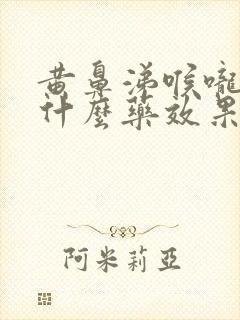 黄鼻涕喉嚨
什麼藥效果
阿米莉亞